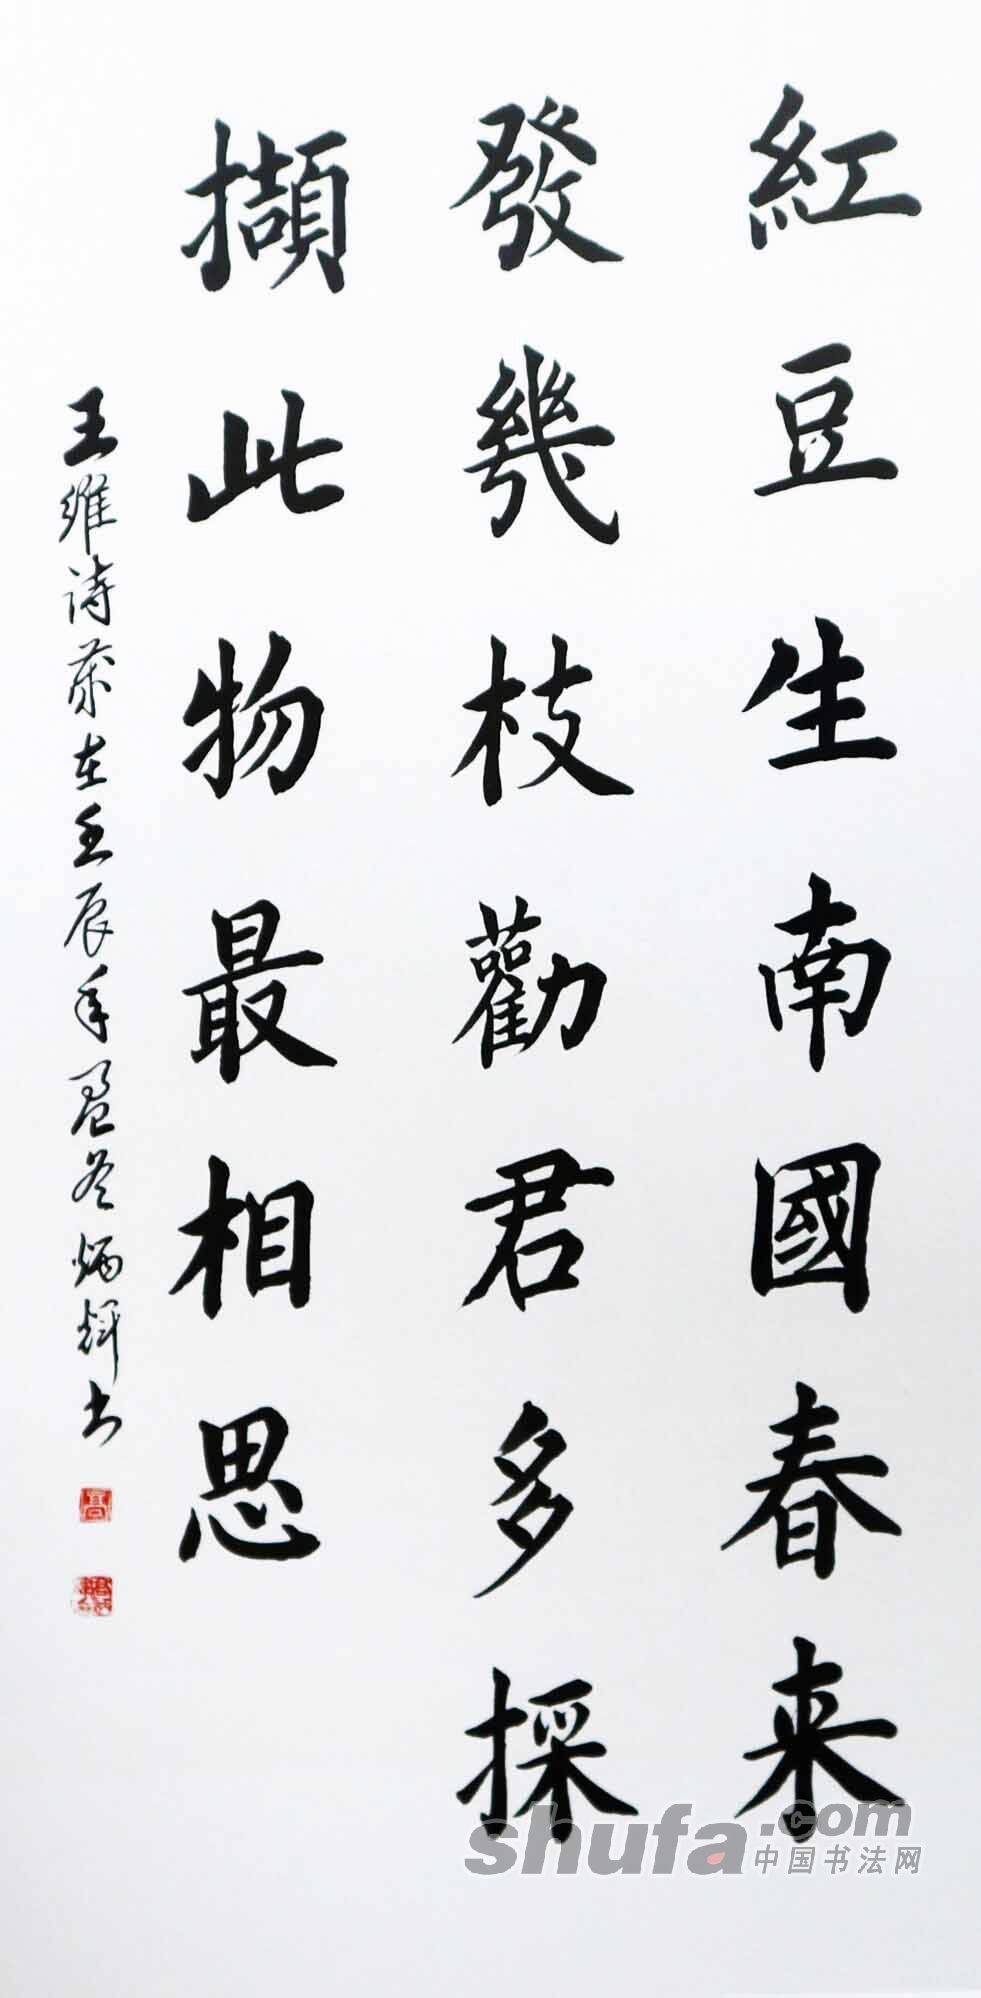 紅豆生南國春来
發幾枝勸君多採
擷此物最相思
王維詩 歲在壬辰年孟冬炳輝书
高
shufa.com
中国书法网